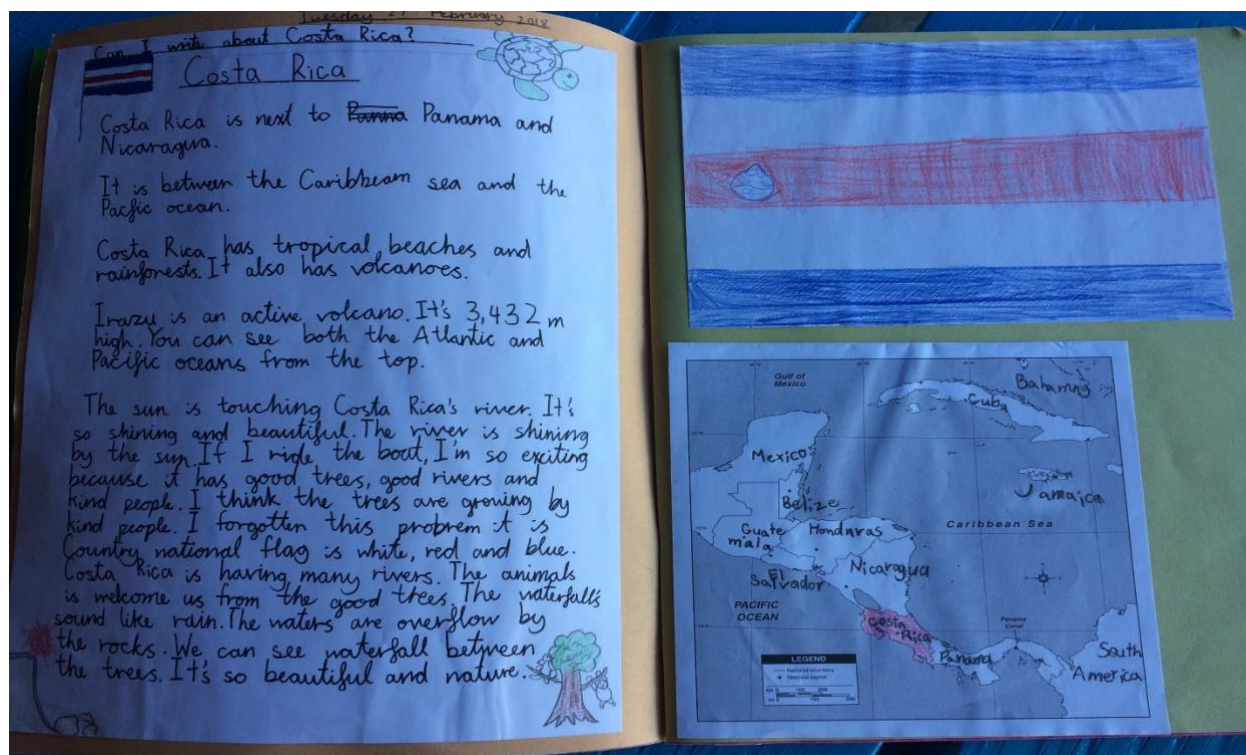 Tuesday 27 February 2018
Can I write about Costa Rica?
Costa Rica
Costa Rica is next to Panama and
Nicaragua.
It is between the Caribbeam sea and the
Pacfic ocean.
Costa Rica has tropical beaches and
rainforests. It also has volcanoes.
Irazu is an active volcano. It's 3,432 m
high. You can see both the Atlantic and
Pacific oceans from the top.
The sun is touching Costa Rica's river. It's
so shining and beautiful. The river is shining
by the sun. If I ride the boat, I'm so exciting
because it has good trees, good rivers and
kind people. I think the trees are growing by
kind people. I forgotten this probrem it is
Country national flag is white, red and blue.
Costa Rica is having many rivers. The animals
is welcome us from the good trees. The waterfall's
sound like rain. The waters are overflow by
the rocks. We can see waterfall between
the trees. It's so beautiful and nature.
Gulf of
Mexico
Bahamng
Cuba
Mexico
Jamaica
Belize
Guate
mala
Hondnras
Caribbean Sea
Nicaragua
El
Salvador
PACIFIC
OCEAN
Costa
Rica
Panama
Canal
Panama
South
America
LEGEND
National boundary
National capital